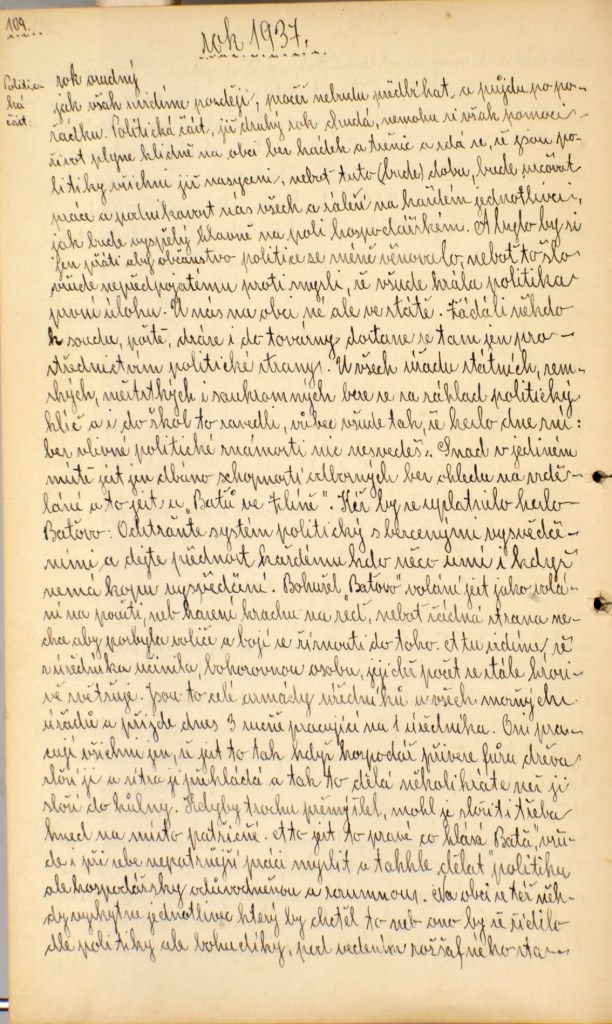 109.
rok 1937.
Politic-
ká
část:
rok osudný
jak však uvidíme později, pročež nebudu předbíhat, a půjdu po po-
řádku. Politická část, již druhý rok chudá, nemohu si však pomoci
život plyne klidně na obci bez hádek a třenic a zdá se, že jsou po-
litiky všichni již nasyceni, neboť tuto (bude) dobu, bude určovat
práce a podnikavost nás všech a záleží na každém jednotlivci,
jak bude vyspělý hlavně na poli hospodářském. A bylo by si
jen přáti aby občanstvo politice se méně věnovalo, neboť to šlo
všude nepředpojatému proti mysli, že všude hrála politika
první úlohu. U nás na obci né ale ve státě. Žádáli někdo
k soudu, poště, dráze i do továrny dostane se tam jen pro-
střednictvím politické strany. U všech úřadu státních, zem-
ských, městských i soukromných bere se za základ politický
klíč a i do škol to zavedli, vůbec všude tak, že heslo dne zní:
bez vlivné politické známosti nic nesvedeš. Snad v jediném
místě jest jen dbáno schopností odborných bez ohledu na vzdě-
lání a to jest u „Batě ve Zlíně". Kéž by se uplatnilo heslo
Baťovo: Odstraňte systém politický s bezcenými vysvědče-
ními a dejte přednost každému kdo něco umí i když
nemá kopu vysvědčení. Bohužel „Baťovo" volání jest jako volá-
ní na poušti, neb házení hrachu na zeď, neboť žádná strana ne-
chce aby pozbyla voliče a bojí se říznouti do toho. A tu vidíme, že
z úředníka učinila, bohorovnou osobu, jejichž počet se stále hrozi-
vě zvětšuje. Jsou to celé armády úředníků u všech možných
úřadů a přijde dnes 3 ručně pracující na 1 úředníka. Oni pra-
cují všichni jen, že jest to tak když hospodář přiveze fůru dřeva
složí ji a zítra ji překládá a tak to dělá několikráte než ji
složí do kůlny. Kdyby trochu přemýšlel, mohl je složiti třeba
hned na místo patřičné. A to jest to pravé co hlásá Baťa, „všu-
de i při sebe nepatrnější práci myslit a takhle dělat" politiku
ale hospodářsky odůvodněnou a rozumnou. Na obci se též něk-
dy vyskytne jednotlivec který by chtěl to neb ono by se řídilo
dle politiky ale bohudíky, pod vedením rozšafného sta-